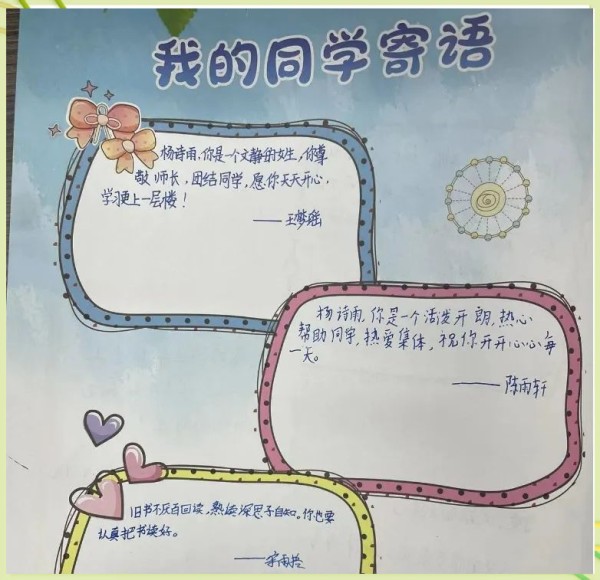 我的同学寄语
杨诗雨,你是一个文静的女生,你尊
敬师长,团结同学,愿你天天开心,
学习更上一层楼!
——王梦瑶
杨诗雨,你是一个活泼开朗,热心
帮助同学,热爱集体,祝你开开心心每
一天。
——陈雨轩
旧书不厌百回读,熟读深思子自知。你也要
认真把书读好。